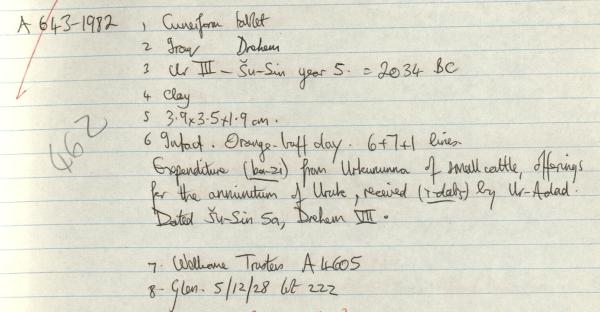 A 643-1982 1 Cuneiform tablet
2 Iraq Drehem
3 Ur III - Šu-Sin year 5. = 2034 BC
4 Clay
5 3.9x3.5x1.9 cm.
462
6 Intact. Orange-buff clay. 6+7+1 lines.
Expenditure (ba-zi) from Urkununna of small cattle, offerings
for the of Uruk, received by Ur-Adad.
Dated Šu-Sin 5a, Drehem VII.
7. Wellcome Trustees A 4605
8. Glen. 5/12/28 lot 222